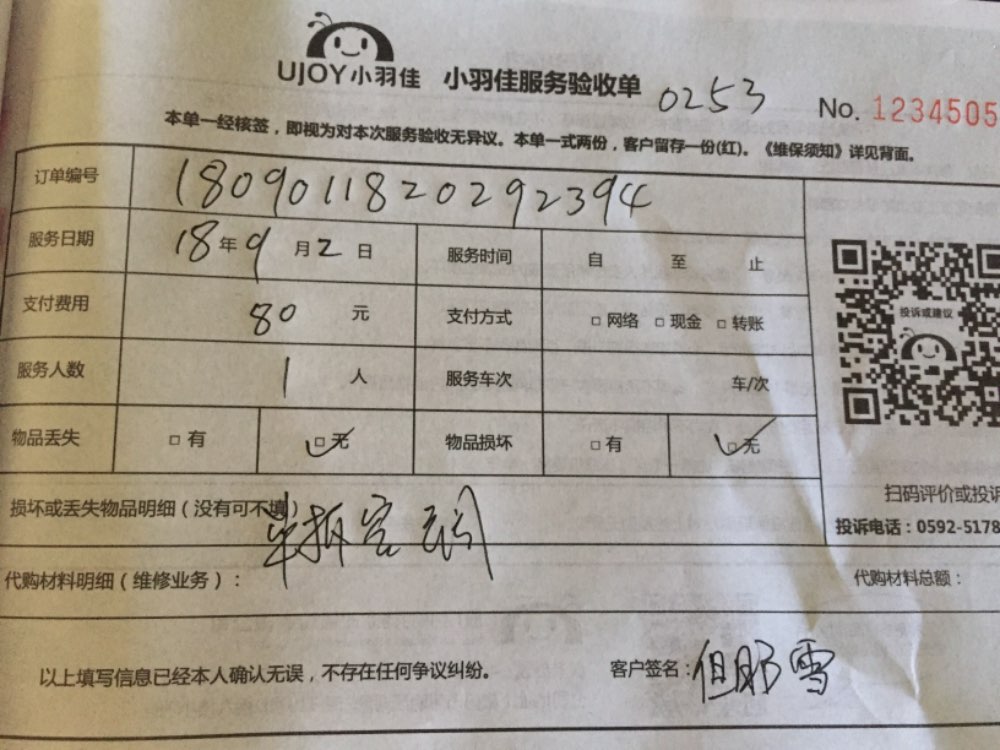 UJOY小羽佳 小羽佳服务验收单 0253 No. 1234505
本单一经核签，即视为对本次服务验收无异议。本单一式两份，客户留存一份(红)。《维保须知》详见背面。
订单编号 1809011820292394
服务日期 18年9月2日 服务时间 自 至 止
支付费用 80元 支付方式 □网络 □现金 □转账
投诉或建议
服务人数 1人 服务车次 车/次
物品丢失 □有 ☑无 物品损坏 □有 ☑无
扫码评价或投诉
损坏或丢失物品明细（没有可不填）
投诉电话：0592-5178
代购材料明细（维修业务）： 代购材料总额：
以上填写信息已经本人确认无误，不存在任何争议纠纷。 客户签名：